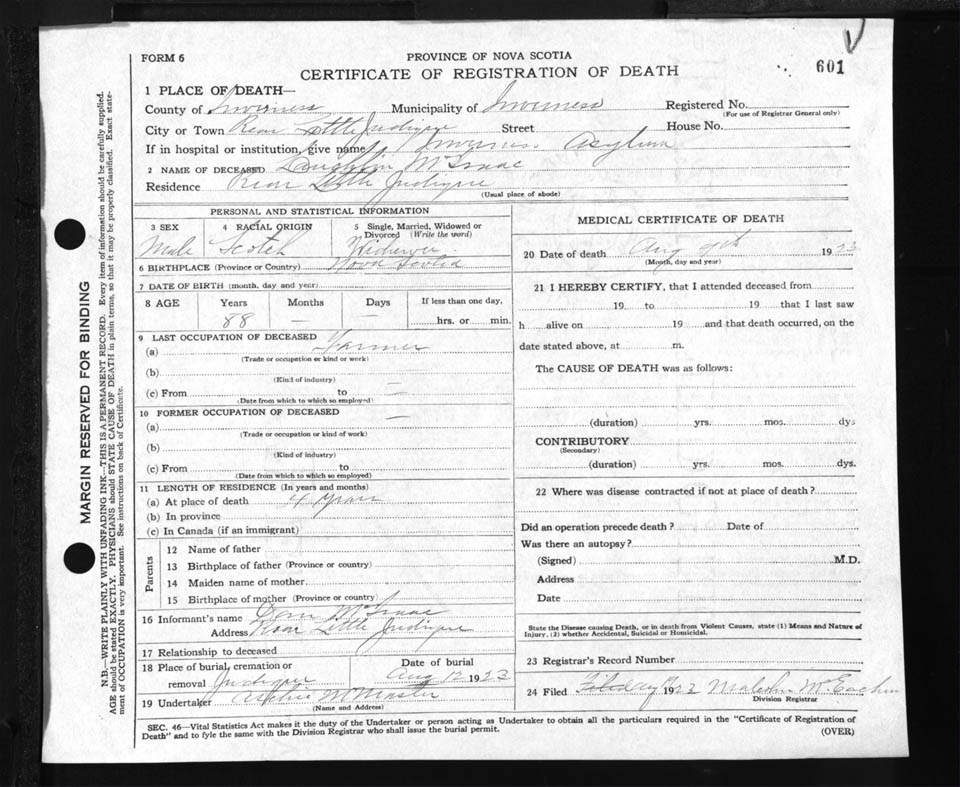 FORM 6
PROVINCE OF NOVA SCOTIA
CERTIFICATE OF REGISTRATION OF DEATH
601
1 PLACE OF DEATH—
County of Inverness Municipality of Inverness Registered No.
(For use of Registrar General only)
City or Town Rear Little Judique Street House No.
If in hospital or institution, give name Inverness Asylum
2 NAME OF DECEASED Laughlin McIsaac
Residence Rear Little Judique
(Usual place of abode)
PERSONAL AND STATISTICAL INFORMATION
3 SEX 4 RACIAL ORIGIN 5 Single, Married, Widowed or Divorced (Write the word)
Male Scotch Widower
6 BIRTHPLACE (Province or Country) Nova Scotia
7 DATE OF BIRTH (month, day and year)
8 AGE Years Months Days If less than one day,
88 — — hrs. or min.
9 LAST OCCUPATION OF DECEASED
(a) Farmer
(Trade or occupation or kind or work)
(b)
(Kind of industry)
(c) From to —
(Date from which to which so employed)
10 FORMER OCCUPATION OF DECEASED —
(a)
(Trade or occupation or kind of work)
(b)
(Kind of industry)
(c) From to
(Date from which to which so employed)
11 LENGTH OF RESIDENCE (In years and months)
(a) At place of death 4 Years
(b) In province
(c) In Canada (if an immigrant)
Parents
12 Name of father
13 Birthplace of father (Province or country)
14 Maiden name of mother
15 Birthplace of mother (Province or country)
16 Informant's name Dan McIsaac
Address Rear Little Judique
17 Relationship to deceased
18 Place of burial, cremation or removal Judique
Date of burial
Aug 12 1923
19 Undertaker McMaster
(Name and Address)
MEDICAL CERTIFICATE OF DEATH
20 Date of death Aug 1923
(Month, day and year)
21 I HEREBY CERTIFY, that I attended deceased from
19 to 19 that I last saw
h alive on 19 and that death occurred, on the
date stated above, at m.
The CAUSE OF DEATH was as follows:
(duration) yrs. mos. dys
CONTRIBUTORY
(Secondary)
(duration) yrs. mos. dys.
22 Where was disease contracted if not at place of death?
Did an operation precede death? Date of
Was there an autopsy?
(Signed) M.D.
Address
Date
State the Disease causing Death, or in death from Violent Causes, state (1) Means and Nature of
Injury, (2) whether Accidental, Suicidal or Homicidal.
23 Registrar's Record Number
24 Filed Filed 1923 Malcolm McEachern
Division Registrar
SEC. 46—Vital Statistics Act makes it the duty of the Undertaker or person acting as Undertaker to obtain all the particulars required in the "Certificate of Registration of
Death" and to fyle the same with the Division Registrar who shall issue the burial permit.
(OVER)
MARGIN RESERVED FOR BINDING
N.B.—WRITE PLAINLY WITH UNFADING INK—THIS IS A PERMANENT RECORD. Every item of information should be carefully supplied.
AGE should be stated EXACTLY. PHYSICIANS should STATE CAUSE OF DEATH in plain terms, so that it may be properly classified. Exact state-
ment of OCCUPATION is very important. See instructions on back of Certificate.